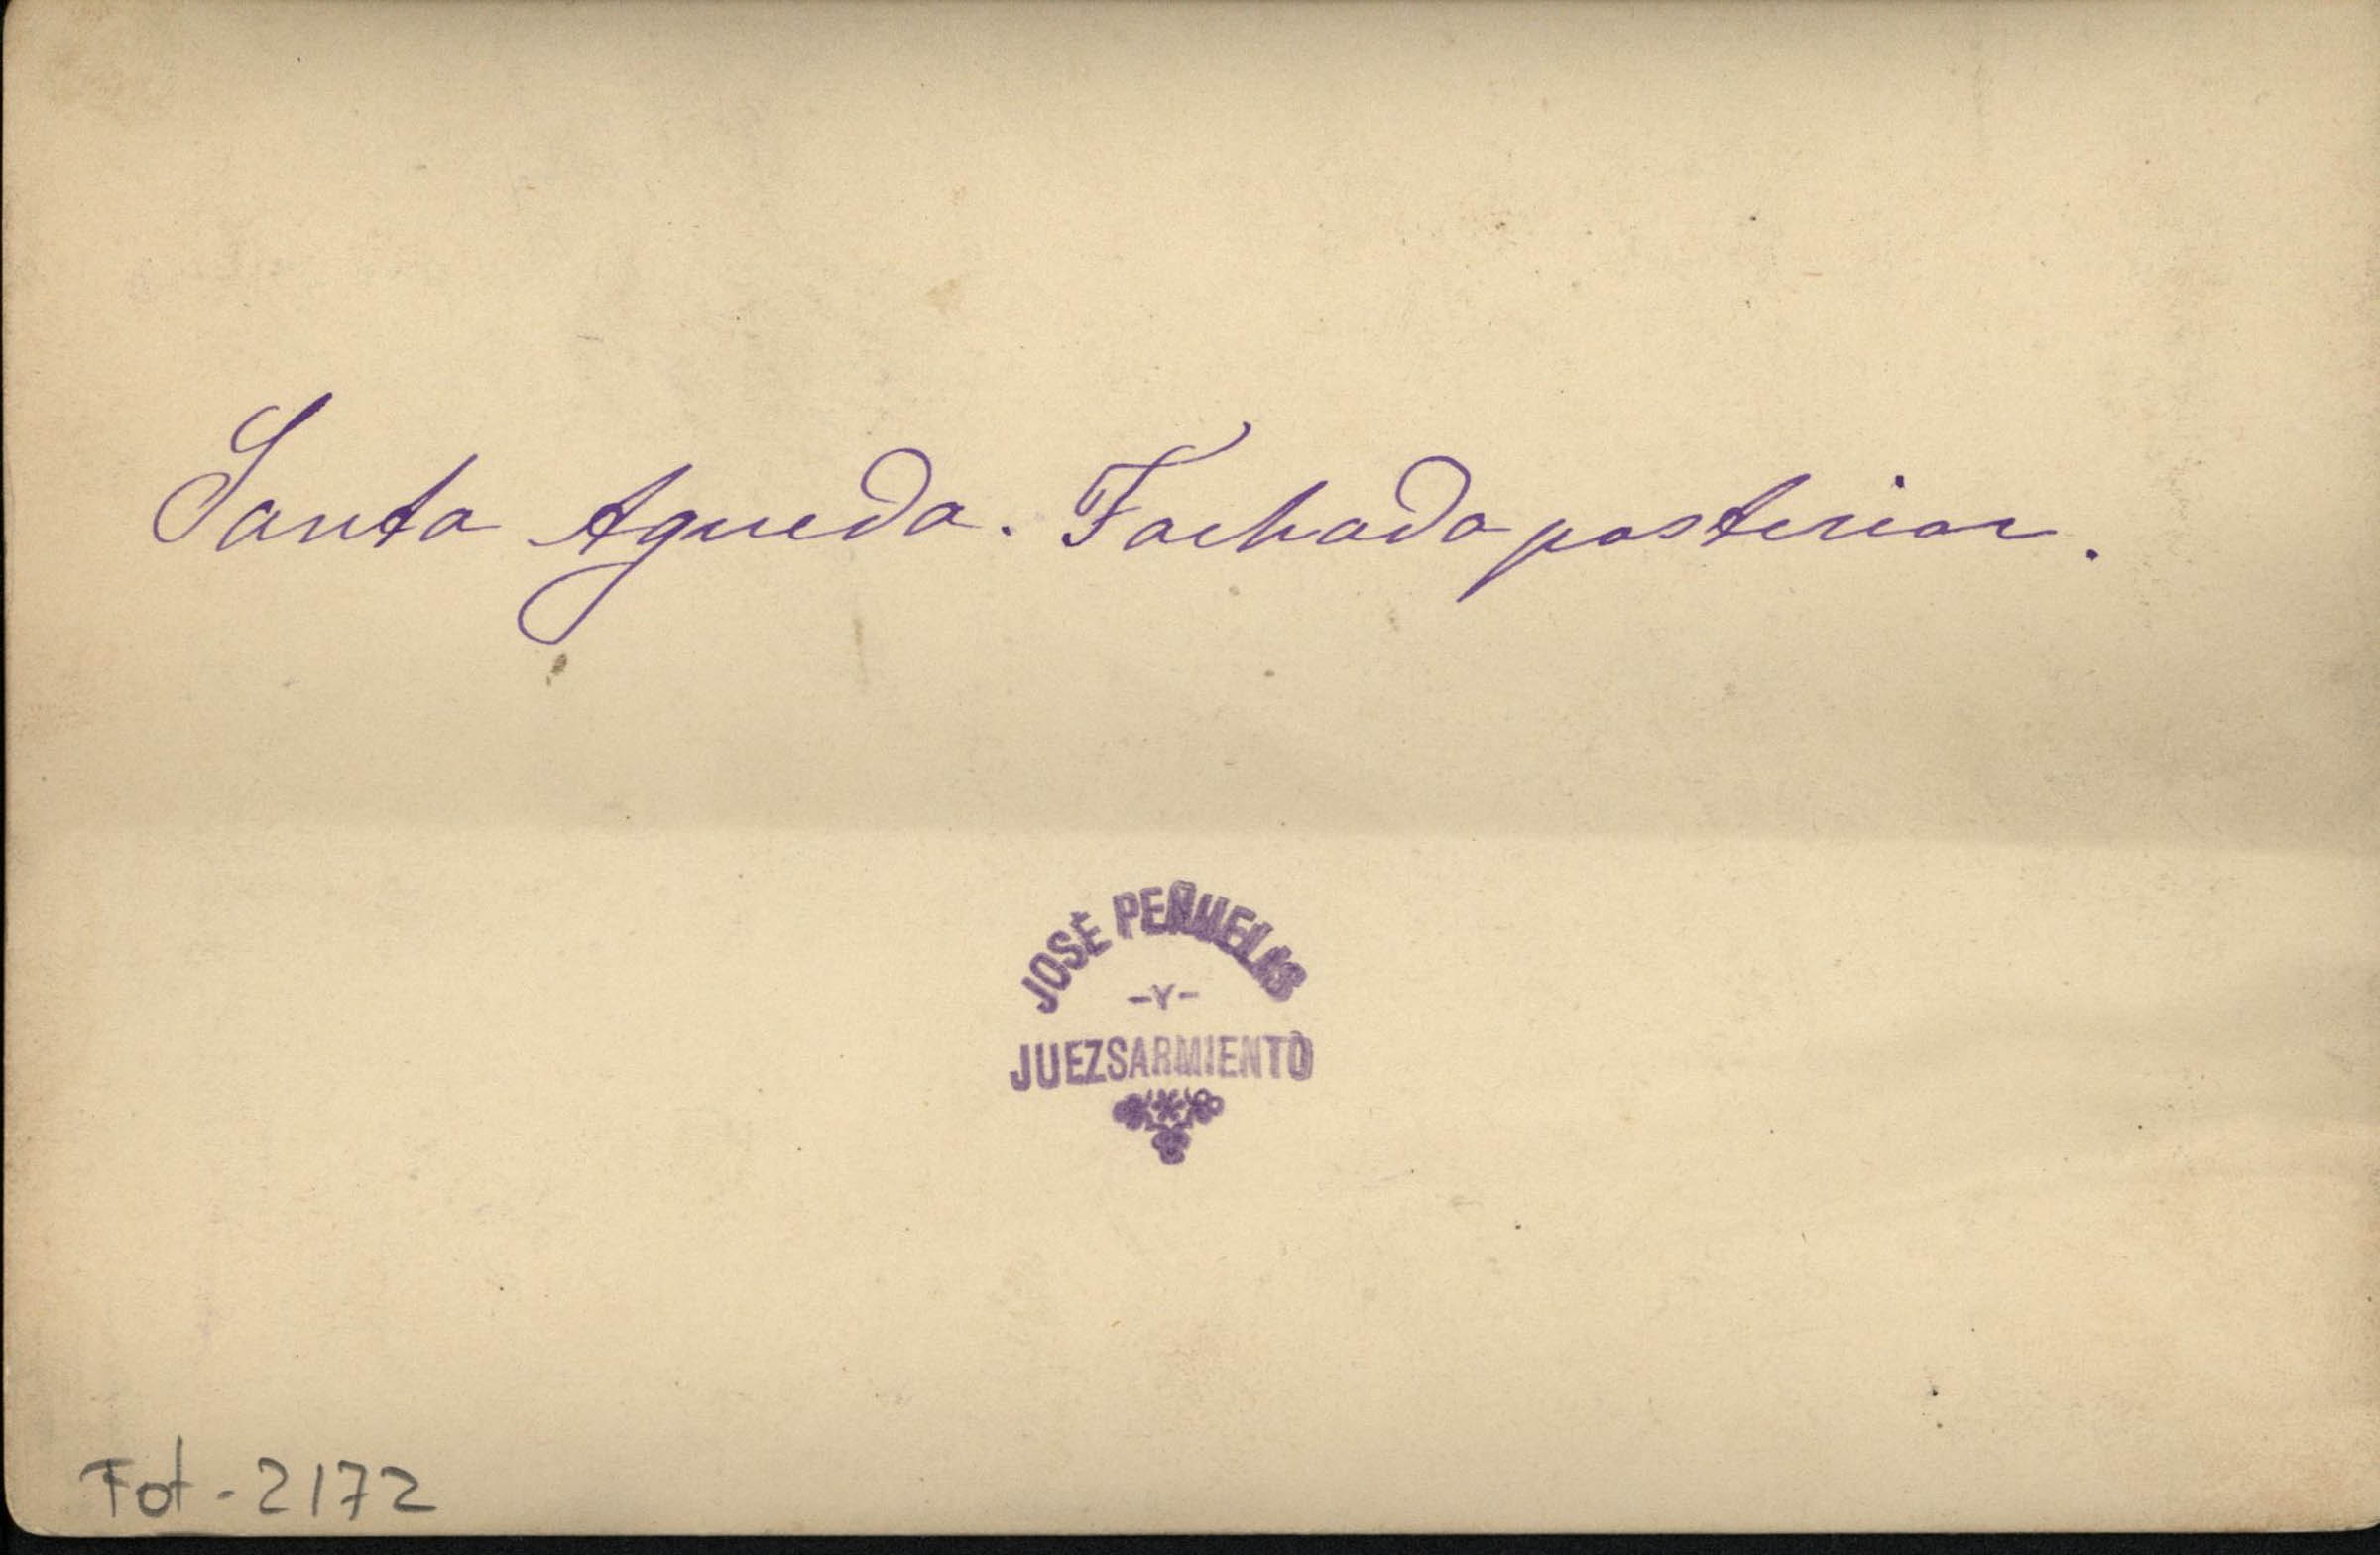 Santa Agueda. Fachada posterior.
JOSÉ PEÑUELAS
-Y-
JUEZSARMIENTO
Fot-2172